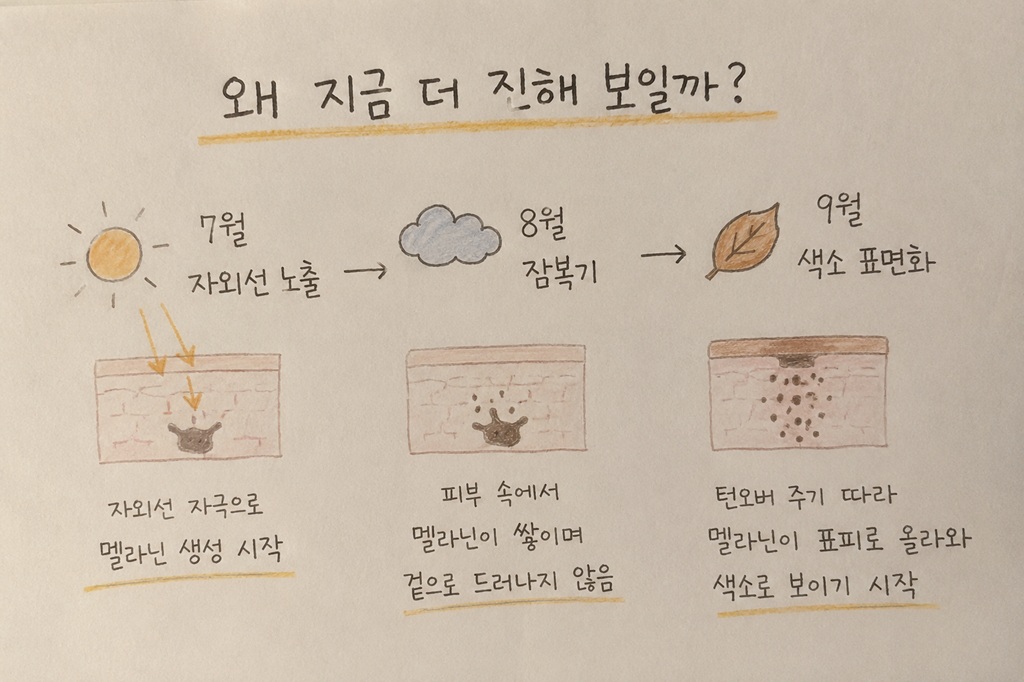 왜 지금 더 진해 보일까?
7월
자외선 노출
8월
잠복기
9월
색소 표면화
자외선 자극으로
멜라닌 생성 시작
피부 속에서
멜라닌이 쌓이며
겉으로 드러나지 않음
턴오버 주기 따라
멜라닌이 표피로 올라와
색소로 보이기 시작